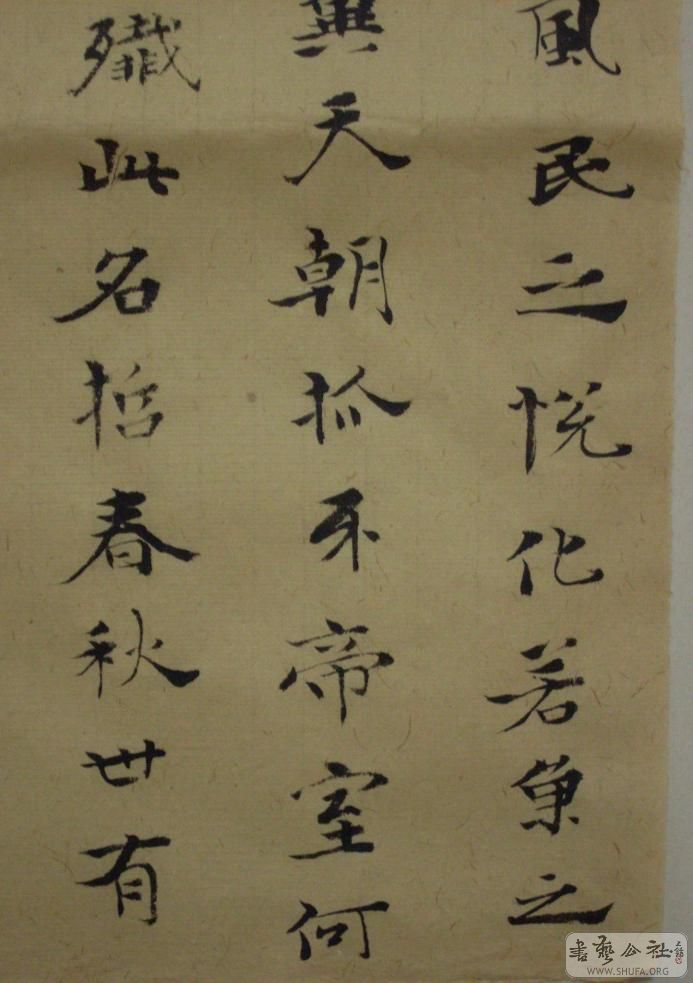 風民之悅化若魚之
翼天朝抓牙帝室何
殲此名哲春秋卅有
書藝公社
WWW.SHUFA.ORG